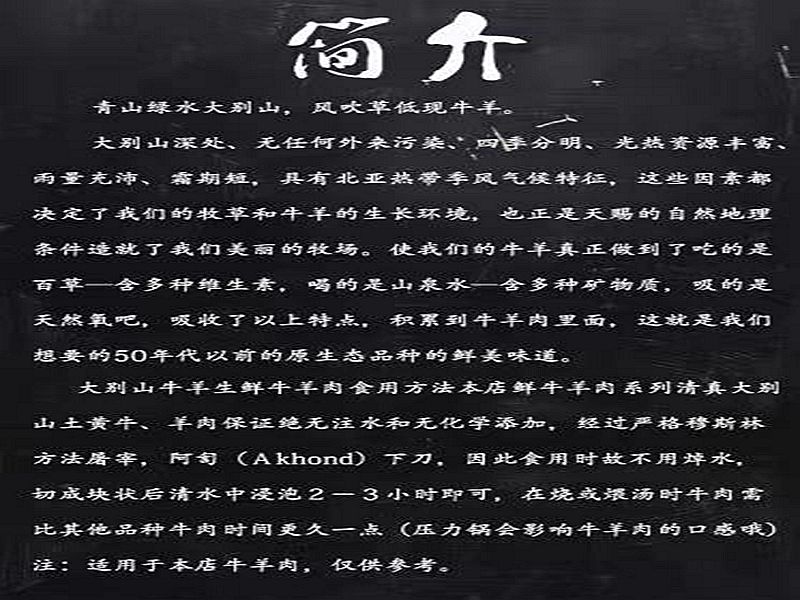 简介
青山绿水大别山，风吹草低现牛羊。
大别山深处、无任何外来污染、四季分明、光热资源丰富、
雨量充沛、霜期短，具有北亚热带季风气候特征，这些因素都
决定了我们的牧草和牛羊的生长环境，也正是天赐的自然地理
条件造就了我们美丽的牧场。使我们的牛羊真正做到了吃的是
百草—含多种维生素，喝的是山泉水—含多种矿物质，吸的是
天然氧吧，吸收了以上特点，积累到牛羊肉里面，这就是我们
想要的50年代以前的原生态品种的鲜美味道。
大别山牛羊生鲜牛羊肉食用方法本店鲜牛羊肉系列清真大别
山土黄牛、羊肉保证绝无注水和无化学添加，经过严格穆斯林
方法屠宰，阿訇（Akhond）下刀，因此食用时故不用焯水，
切成块状后清水中浸泡2－3小时即可，在烧或煨汤时牛肉需
比其他品种牛肉时间更久一点（压力锅会影响牛羊肉的口感哦）
注：适用于本店牛羊肉，仅供参考。